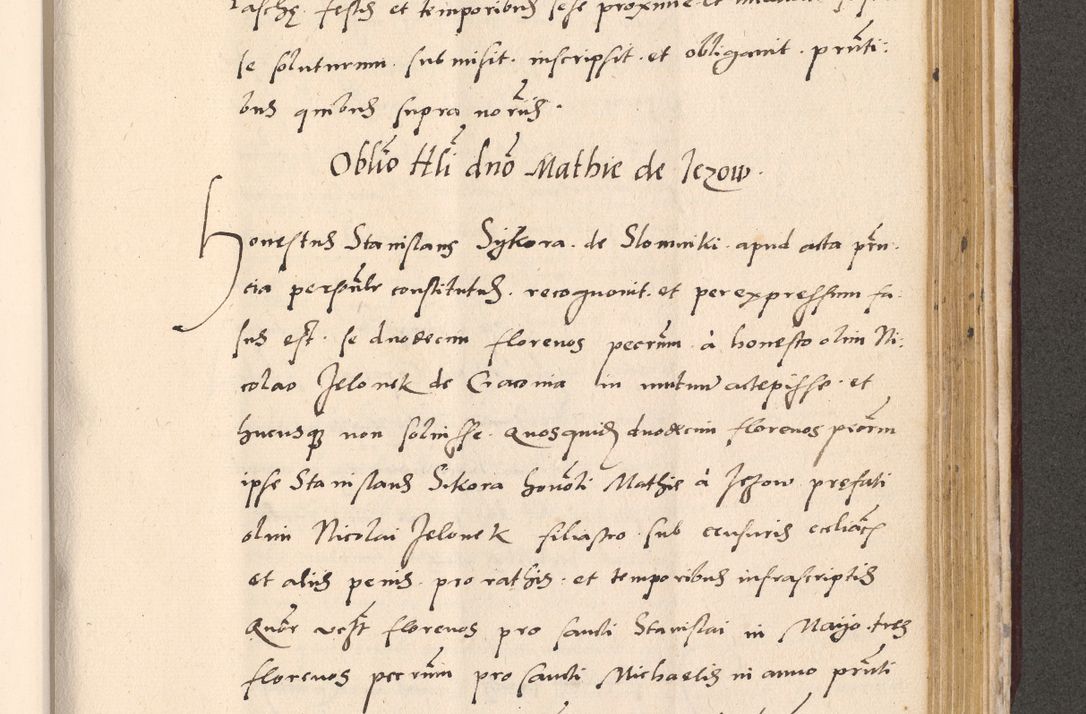 paschę festis et temporibus sese proxime et
se soluturum . submisit . inscripsit . et obligavit . prnti:
bus quibus supra noriis .
Oblio Hli dno Mathie de Iezow .
Honestus Stanislaus Sykora . de Slomniki . apud acta prnn .
cia personlr constitutus . recognovit . et per expressum fa .
sus est . se duodecim florenos pecrum . à honesto olim Ni:
colao Jelonek de Cracovia in mutuum accepisse . et
hucusque non soluisse . Quosquidem duodecim florenos priorum
ipse Stanislaus Sikora honorti Mathie à Iezow prefati
olim Nicolai Jelonek filiastro . sub censuris eccliacis
et aliis penis . pro rathis . et temporibus infrascriptis
Qubr vcslt florenos pro sancti Stanislai in Mayo . tres
florenos pecrum pro sancti Michaelis in anno prnti